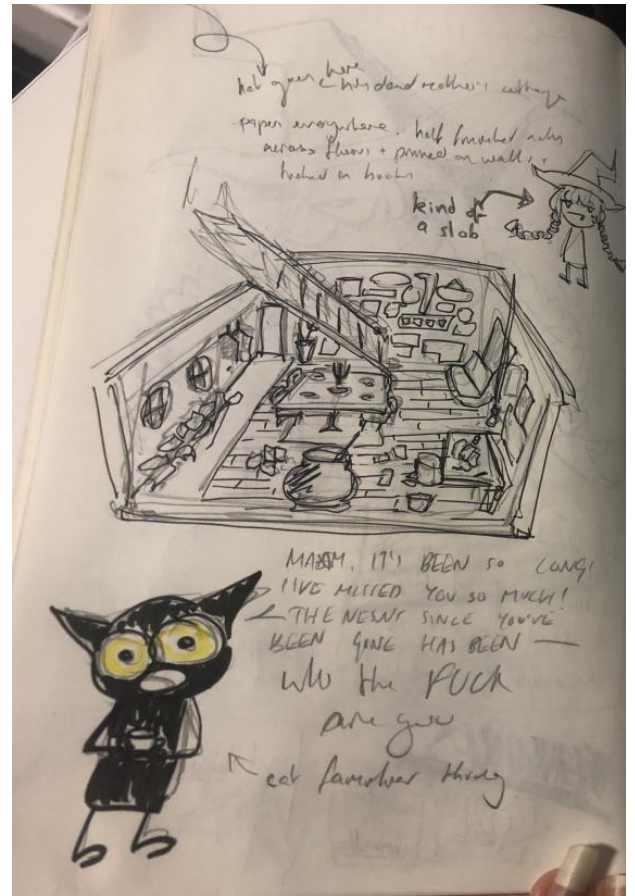 here
not open < his dead mother's cottage
paper everywhere. half finished notes
across floors + pinned on walls,
tucked in books
kind of
a slob
MA'AM, IT'S BEEN SO LONG!
I'VE MISSED YOU SO MUCH!
THE SINCE YOU'VE
BEEN GONE HAS BEEN —
who the FUCK
are you
cat familiar thing